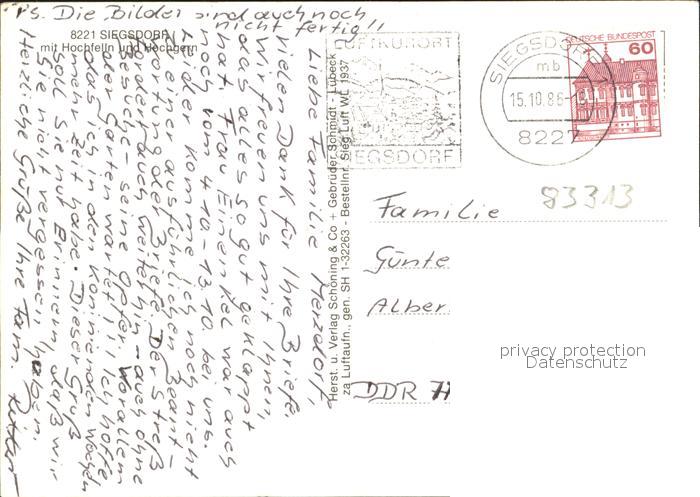 P.S. Die Bilder sind auch noch
nicht fertig!!
8221 SIEGSDORF
mit Hochfelln und Hochgern
Liebe Familie Herzdorff,
vielen Dank für Ihre Briefe.
Wir freuen uns mit Ihnen,
das alles so gut geklappt
hat. Frau Einenkel war auch
noch vom 4.10-13.10. bei uns.
Leider komme ich noch nicht
zu einer ausführlichen Beant-
wortung der Briefe. Der Streß
fordert auch weiterhin - auch ohne
Besuch - seine Opfer. Vor allem
der Garten wartet!!! Ich hoffe
das ich in den kommenden Wochen
mehr Zeit habe. Dieser Gruß
soll sie nur Erinnern daß wir
Sie nicht vergessen haben.
Herzliche Grüße Ihre Fam.
Herst. u. Verlag Schöning & Co + Gebrüder Schmidt - Lübeck
za Luftaufn., gen. SH 1-32263 - Bestellnr. Sieg Luft WL 1937
LUFTKURORT
SIEGSDORF
SIEGSDORF
mb
15.10.86
8227
DEUTSCHE BUNDESPOST
60
83313
Familie
Günte
Alber
DDR
privacy protection
Datenschutz